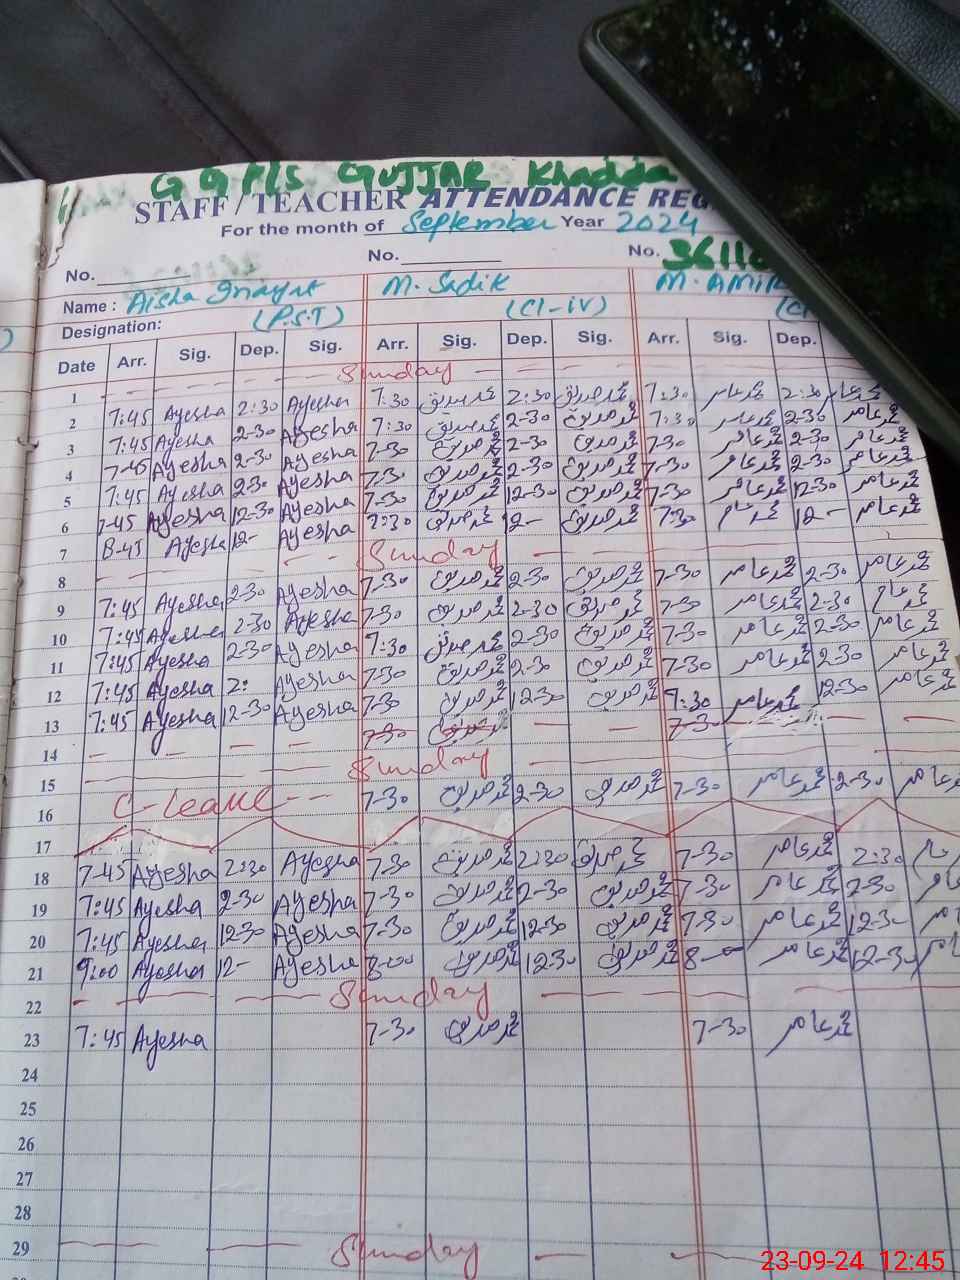 G G P/S GUJJAR Khadda
STAFF / TEACHER ATTENDANCE REG
For the month of September Year 2024
No. No. No. 36110
Name : Aisha Inayat M. Sadik M. AMIR
Designation: (P.S.T) (Cl-iv)
Date Arr. Sig. Dep. Sig. Arr. Sig. Dep. Sig. Arr. Sig. Dep.
1 Sunday
2 7:45 Ayesha 2:30 Ayesha 7:30 محمد صدیق 2:30 محمد صدیق 7:30 محمد عامر 2:30 محمد عامر
3 7:45 Ayesha 2-30 Ayesha 7:30 محمد صدیق 2-30 محمد صدیق 7:30 محمد عامر 2-30 محمد عامر
4 7-45 Ayesha 2-30 Ayesha 7-30 محمد صدیق 2-30 محمد صدیق 7-30 محمد عامر 2-30 محمد عامر
5 7:45 Ayesha 2-30 Ayesha 7-30 محمد صدیق 2-30 محمد صدیق 7-30 محمد عامر 2-30 محمد عامر
6 7-45 Ayesha 12-30 Ayesha 7-30 محمد صدیق 12-30 محمد صدیق 7-30 محمد عامر 12-30 محمد عامر
7 8-45 Ayesha 12- Ayesha 7:30 محمد صدیق 12- محمد صدیق 7:30 محمد عامر 12- محمد عامر
8 Sunday
9 7:45 Ayesha 2-30 Ayesha 7-30 محمد صدیق 2-30 محمد صدیق 7-30 محمد عامر 2-30 محمد عامر
10 7:45 Ayesha 2-30 Ayesha 7-30 محمد صدیق 2-30 محمد صدیق 7-30 محمد عامر 2-30 محمد عامر
11 7:45 Ayesha 2-30 Ayesha 7:30 محمد صدیق 2-30 محمد صدیق 7-30 محمد عامر 2-30 محمد عامر
12 7:45 Ayesha 2: Ayesha 7-30 محمد صدیق 2-30 محمد صدیق 7-30 محمد عامر 2-30 محمد عامر
13 7:45 Ayesha 12-30 Ayesha 7-30 محمد صدیق 12-30 محمد صدیق 7:30 محمد عامر 12-30 محمد عامر
14 7-30 محمد صدیق 7-30
15 Sunday
16 C-Leave 7-30 محمد صدیق 2-30 محمد صدیق 7-30 محمد عامر 2-30 محمد عامر
17
18 7-45 Ayesha 2:30 Ayesha 7-30 محمد صدیق 2:30 محمد صدیق 7-30 محمد عامر 2:30
19 7:45 Ayesha 2-30 Ayesha 7-30 محمد صدیق 2-30 محمد صدیق 7-30 محمد عامر 2-30
20 7:45 Ayesha 12-30 Ayesha 7-30 محمد صدیق 12-30 محمد صدیق 7-30 محمد عامر 12-30
21 9:00 Ayesha 12- Ayesha 8-00 محمد صدیق 12-30 محمد صدیق 8-00 محمد عامر 12-30
22 Sunday
23 7:45 Ayesha 7-30 محمد صدیق 7-30 محمد عامر
24
25
26
27
28
29 Sunday
23-09-24 12:45